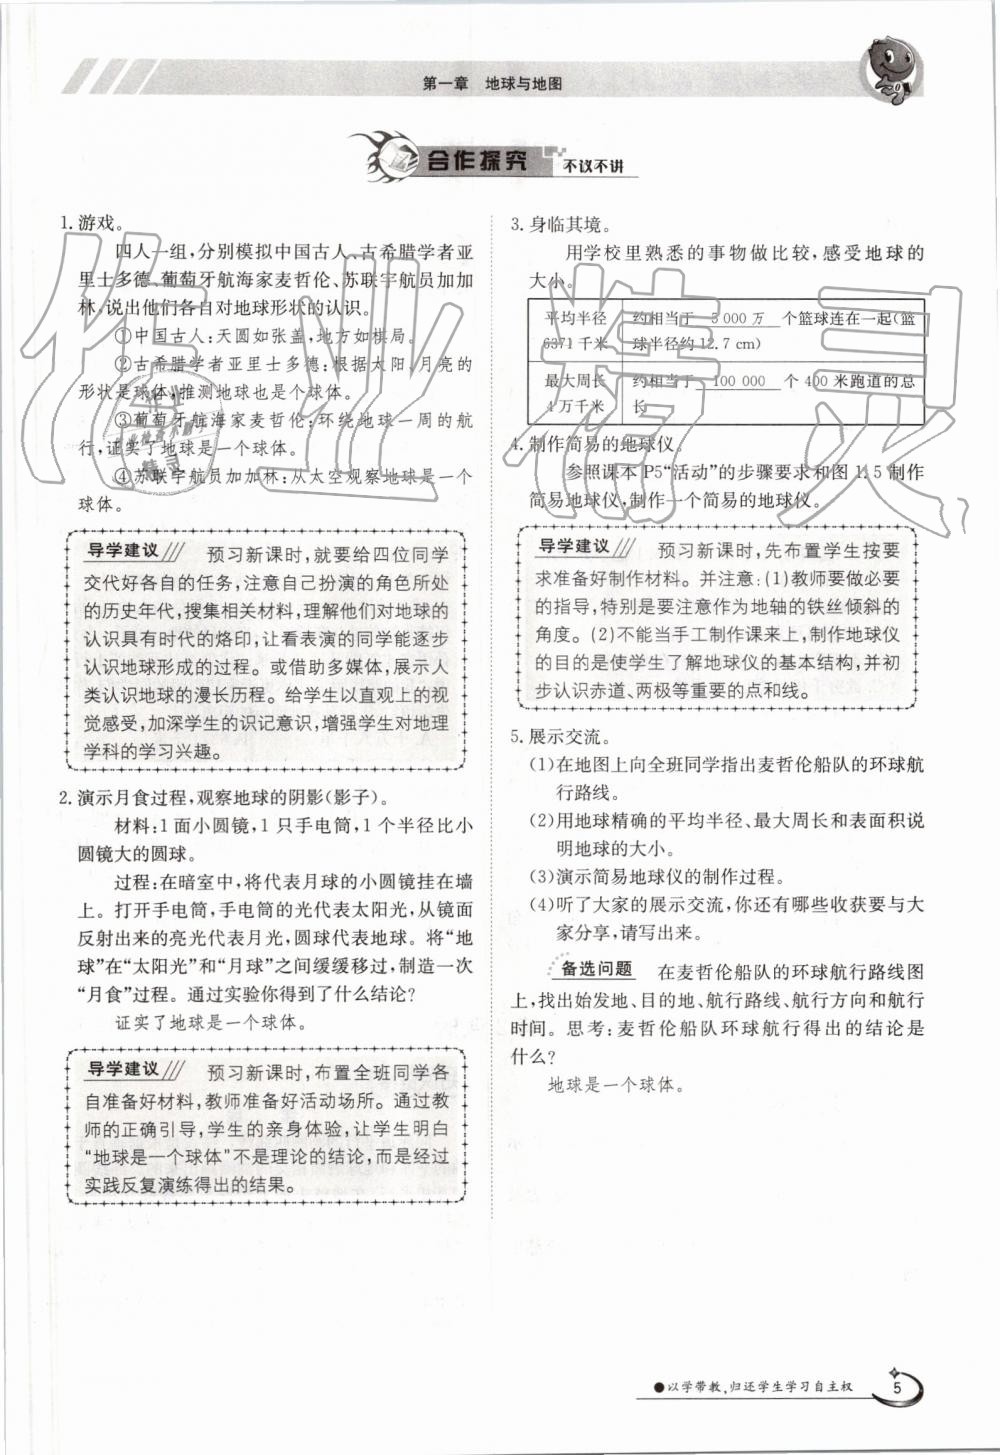 第一章 地球与地图
合作探究 不议不讲
1. 游戏。
四人一组,分别模拟中国古人、古希腊学者亚
里士多德、葡萄牙航海家麦哲伦、苏联宇航员加加
林,说出他们各自对地球形状的认识。
①中国古人:天圆如张盖,地方如棋局。
②古希腊学者亚里士多德:根据太阳、月亮的
形状是球体,推测地球也是个球体。
③葡萄牙航海家麦哲伦:环绕地球一周的航
行,证实了地球是一个球体。
④苏联宇航员加加林:从太空观察地球是一个
球体。
导学建议 预习新课时,就要给四位同学
交代好各自的任务,注意自己扮演的角色所处
的历史年代,搜集相关材料,理解他们对地球的
认识具有时代的烙印,让看表演的同学能逐步
认识地球形成的过程。或借助多媒体,展示人
类认识地球的漫长历程。给学生以直观上的视
觉感受,加深学生的识记意识,增强学生对地理
学科的学习兴趣。
2. 演示月食过程,观察地球的阴影(影子)。
材料:1 面小圆镜,1 只手电筒,1 个半径比小
圆镜大的圆球。
过程:在暗室中,将代表月球的小圆镜挂在墙
上。打开手电筒,手电筒的光代表太阳光,从镜面
反射出来的亮光代表月光,圆球代表地球。将“地
球”在“太阳光”和“月球”之间缓缓移过,制造一次
“月食”过程。通过实验你得到了什么结论?
证实了地球是一个球体。
导学建议 预习新课时,布置全班同学各
自准备好材料,教师准备好活动场所。通过教
师的正确引导,学生的亲身体验,让学生明白
“地球是一个球体”不是理论的结论,而是经过
实践反复演练得出的结果。
3. 身临其境。
用学校里熟悉的事物做比较,感受地球的
大小。
平均半径 约相当于 5 000 万 个篮球连在一起(篮
6371 千米 球半径约 12.7 cm)
最大周长 约相当于 100 000 个 400 米跑道的总
4 万千米 长
4. 制作简易的地球仪。
参照课本 P5“活动”的步骤要求和图 1.5 制作
简易地球仪,制作一个简易的地球仪。
导学建议 预习新课时,先布置学生按要
求准备好制作材料。并注意:(1)教师要做必要
的指导,特别是要注意作为地轴的铁丝倾斜的
角度。(2)不能当手工制作课来上,制作地球仪
的目的是使学生了解地球仪的基本结构,并初
步认识赤道、两极等重要的点和线。
5. 展示交流。
(1)在地图上向全班同学指出麦哲伦船队的环球航
行路线。
(2)用地球精确的平均半径、最大周长和表面积说
明地球的大小。
(3)演示简易地球仪的制作过程。
(4)听了大家的展示交流,你还有哪些收获要与大
家分享,请写出来。
备选问题 在麦哲伦船队的环球航行路线图
上,找出始发地、目的地、航行路线、航行方向和航行
时间。思考:麦哲伦船队环球航行得出的结论是
什么?
地球是一个球体。
●以学带教,归还学生学习自主权 5
作业精灵